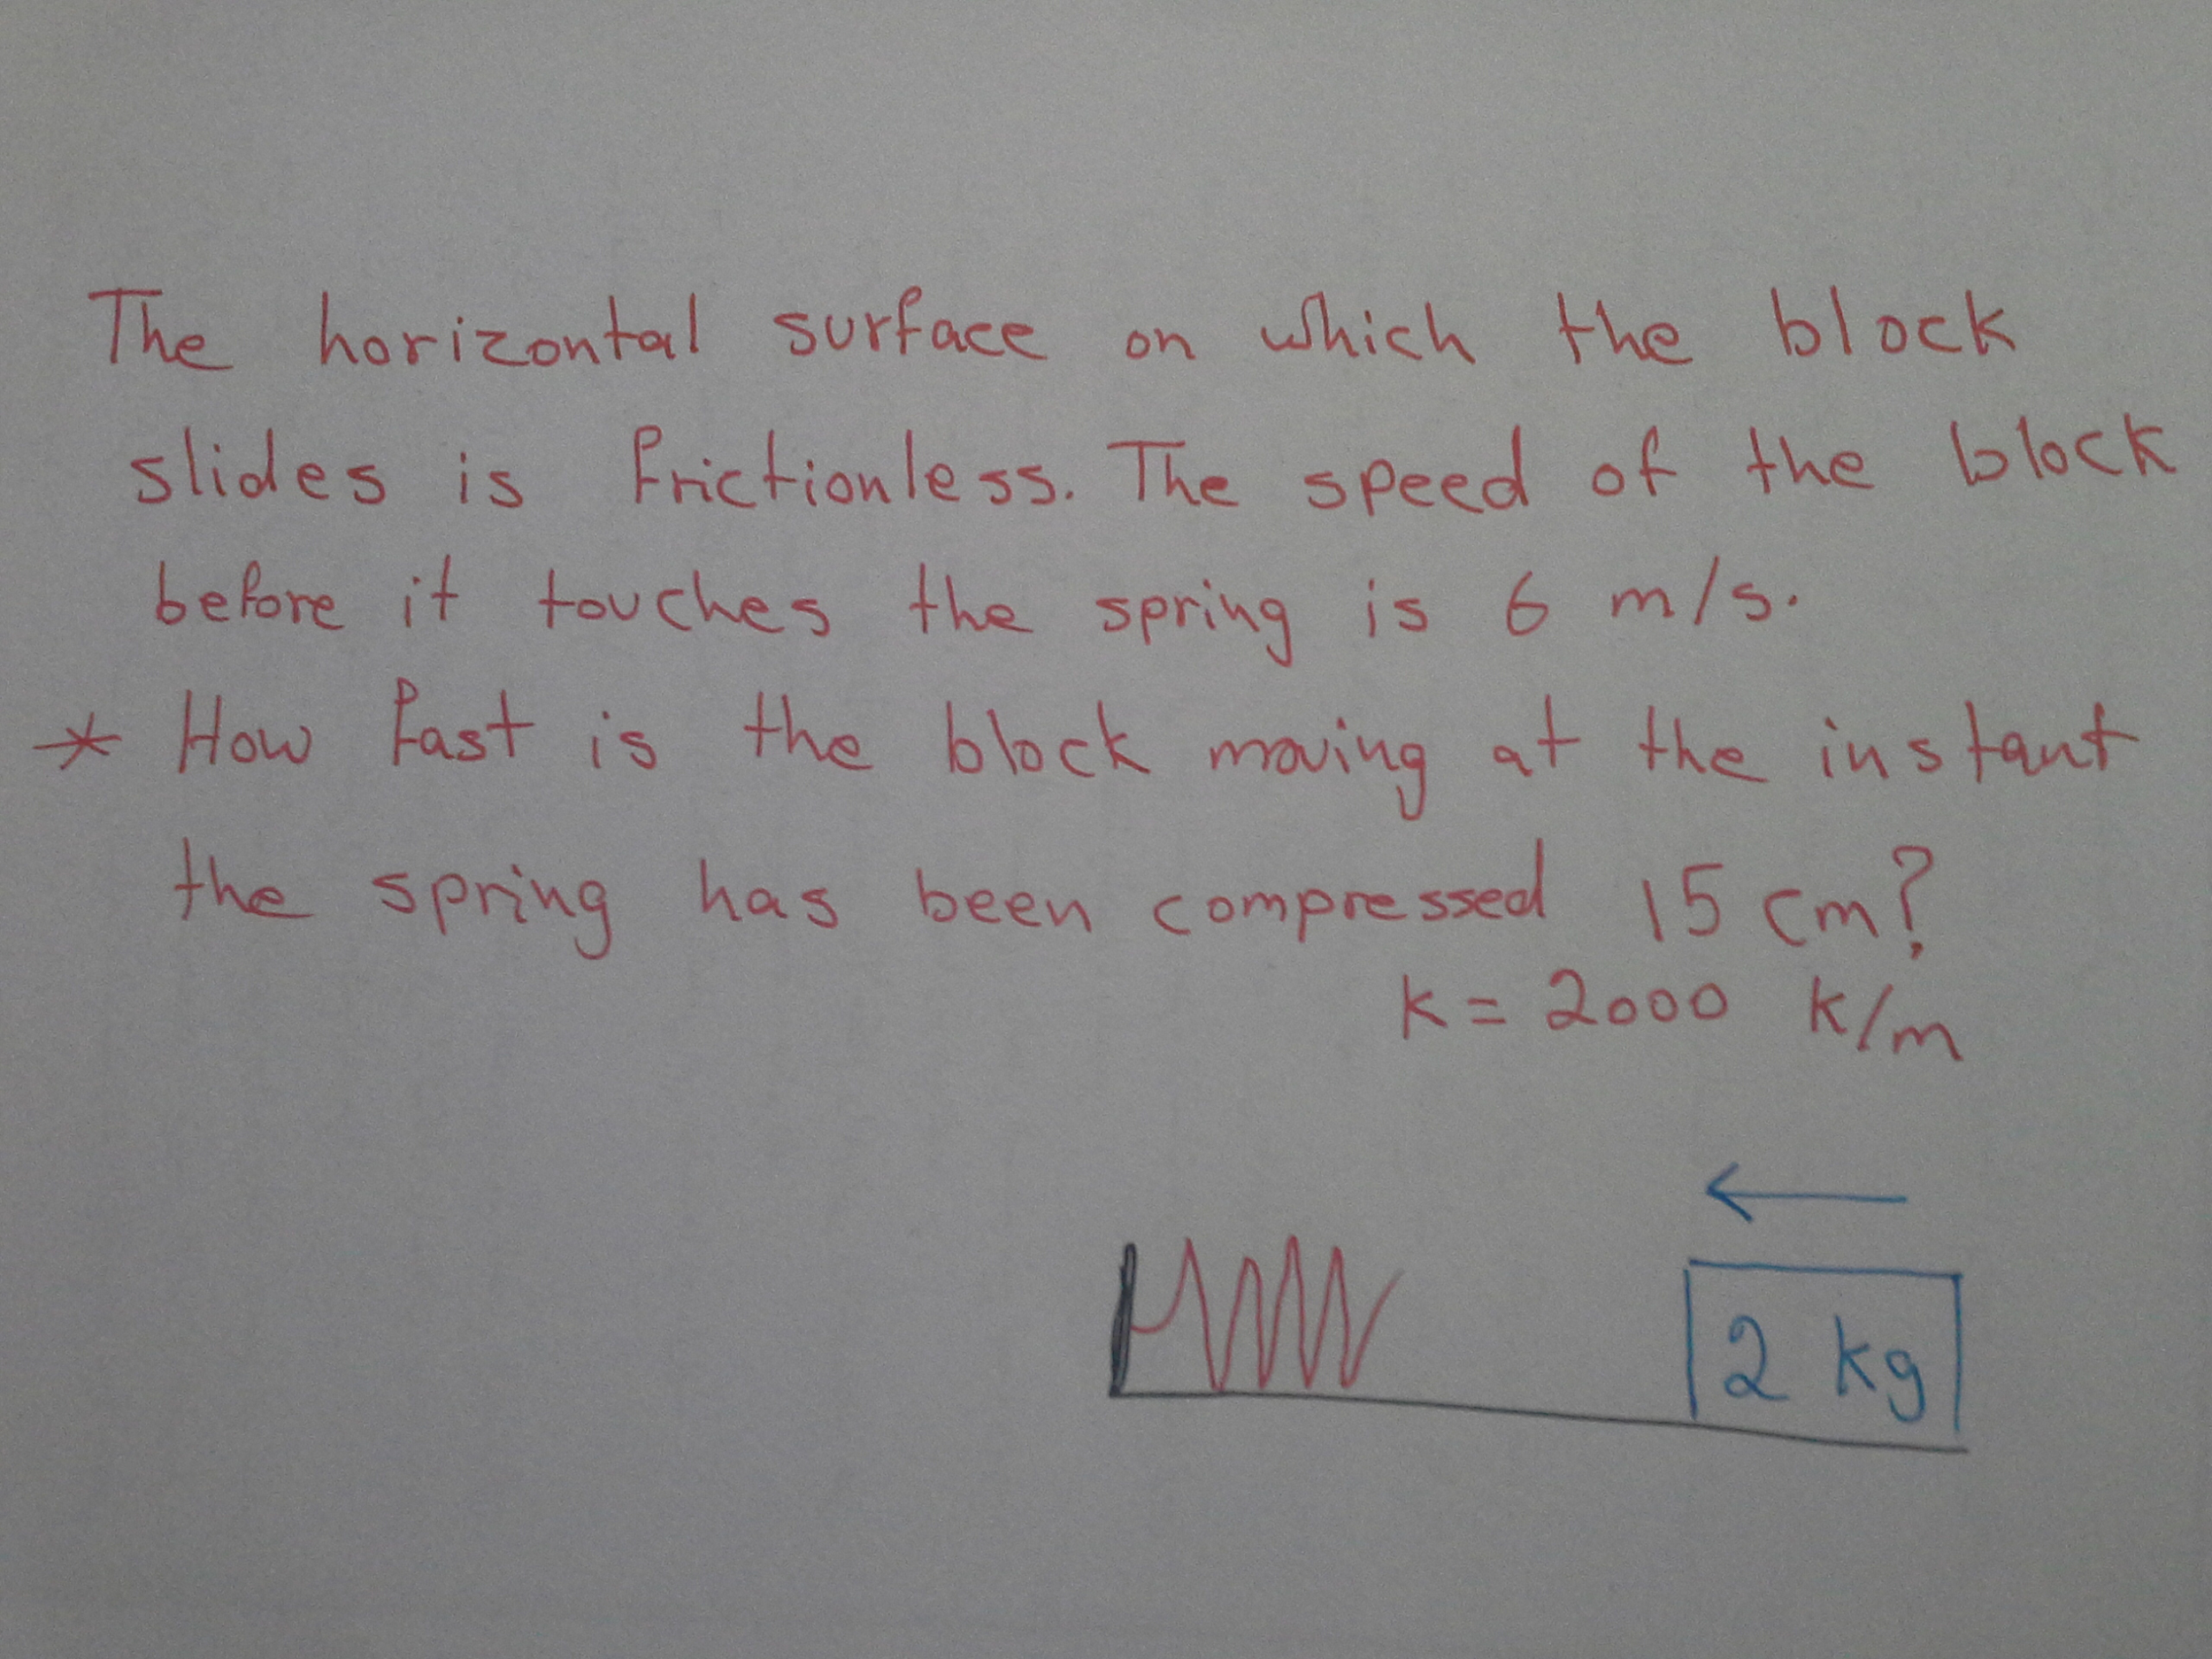 The horizontal surface on which the block
slides is frictionless. The speed of the block
before it touches the spring is 6 m/s.
* How fast is the block moving at the instant
the spring has been compressed 15 cm?
k = 2000 k/m
2 kg